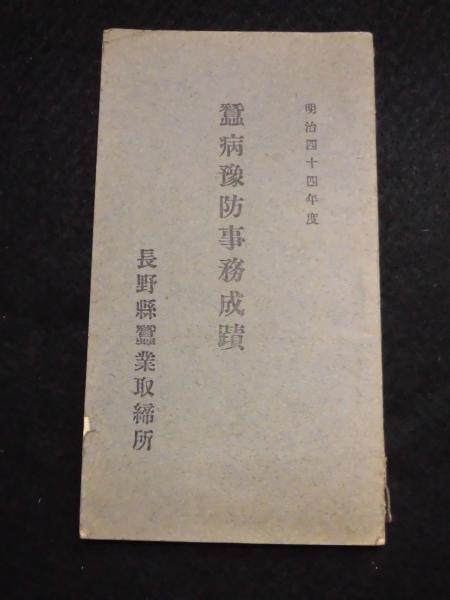 明治四十四年度
蠶病豫防事務成蹟
長野縣蠶業取締所